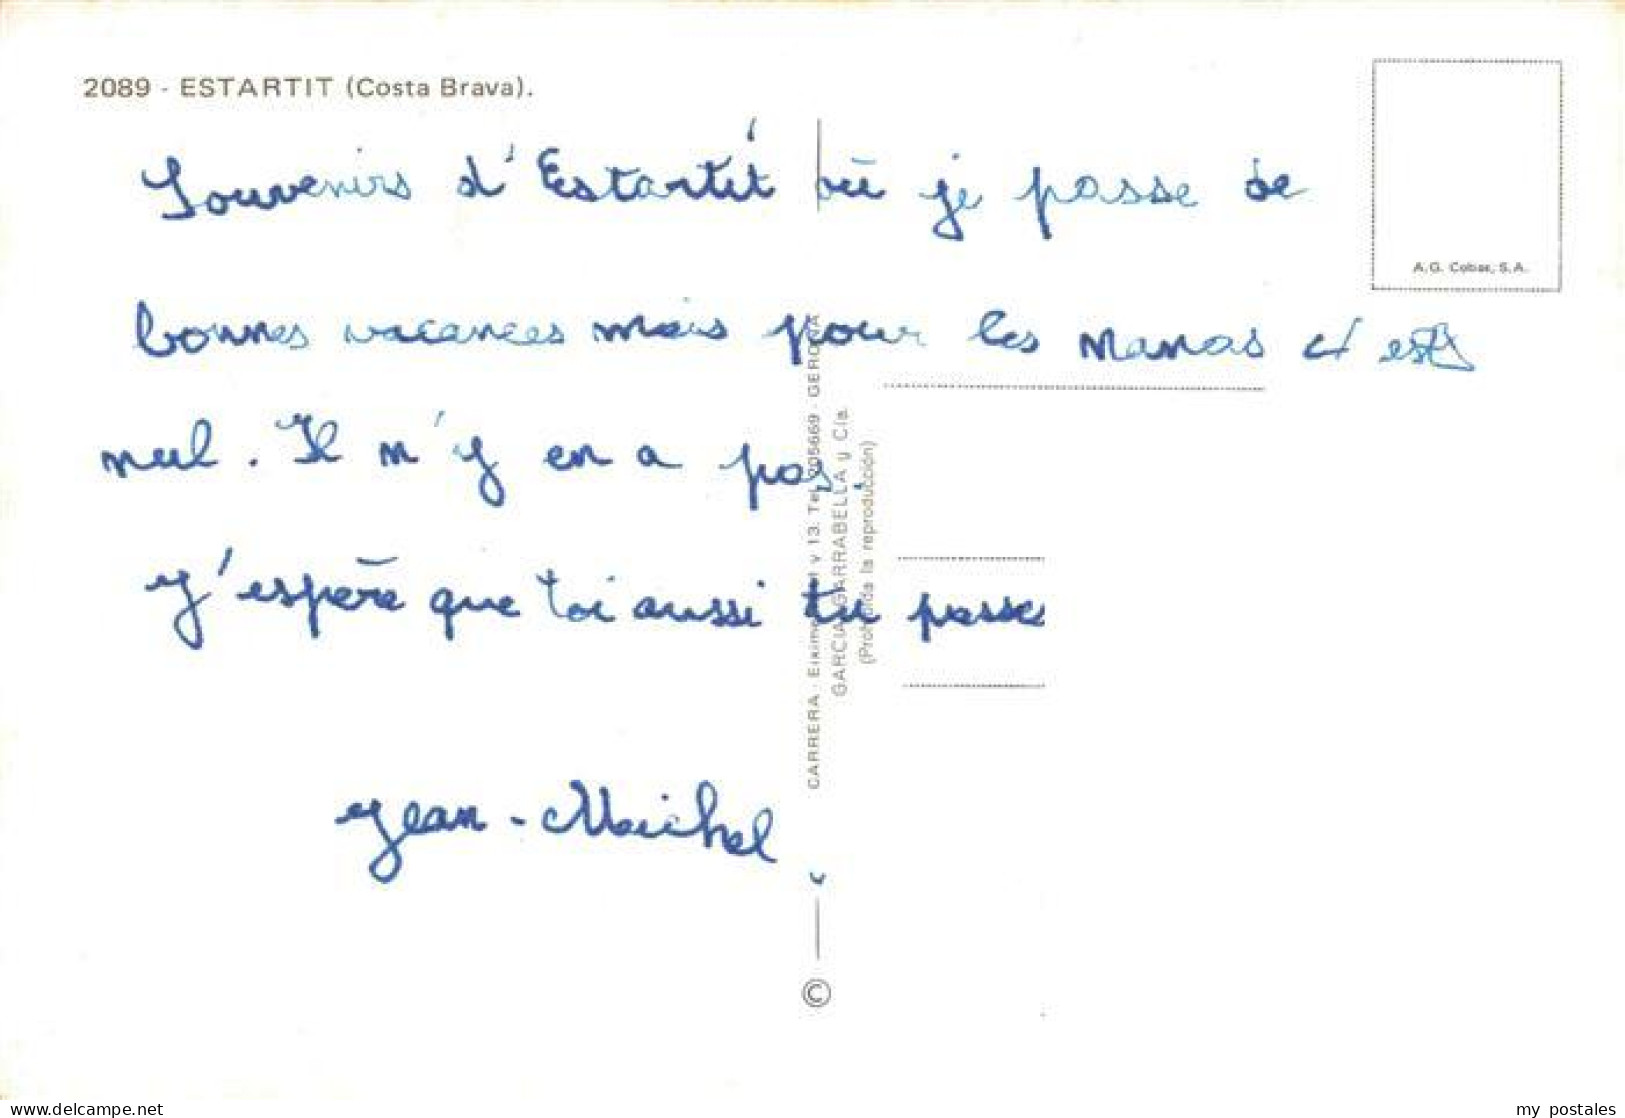 2089 - ESTARTIT (Costa Brava).
Souvenirs d'Estartit où je passe de
bonnes vacances mais pour les nanas c'est
nul. Il n'y en a pas.
J'espère que toi aussi tu passes
Jean-Michel
A.G. Cobas, S.A.
CARRERA - Eixime v 13. Tel. 205669 - GERONA
GARCIA GARRABELLA y Cía.
(Prohibida la reproducción)
©
www.delcampe.net
my_postales